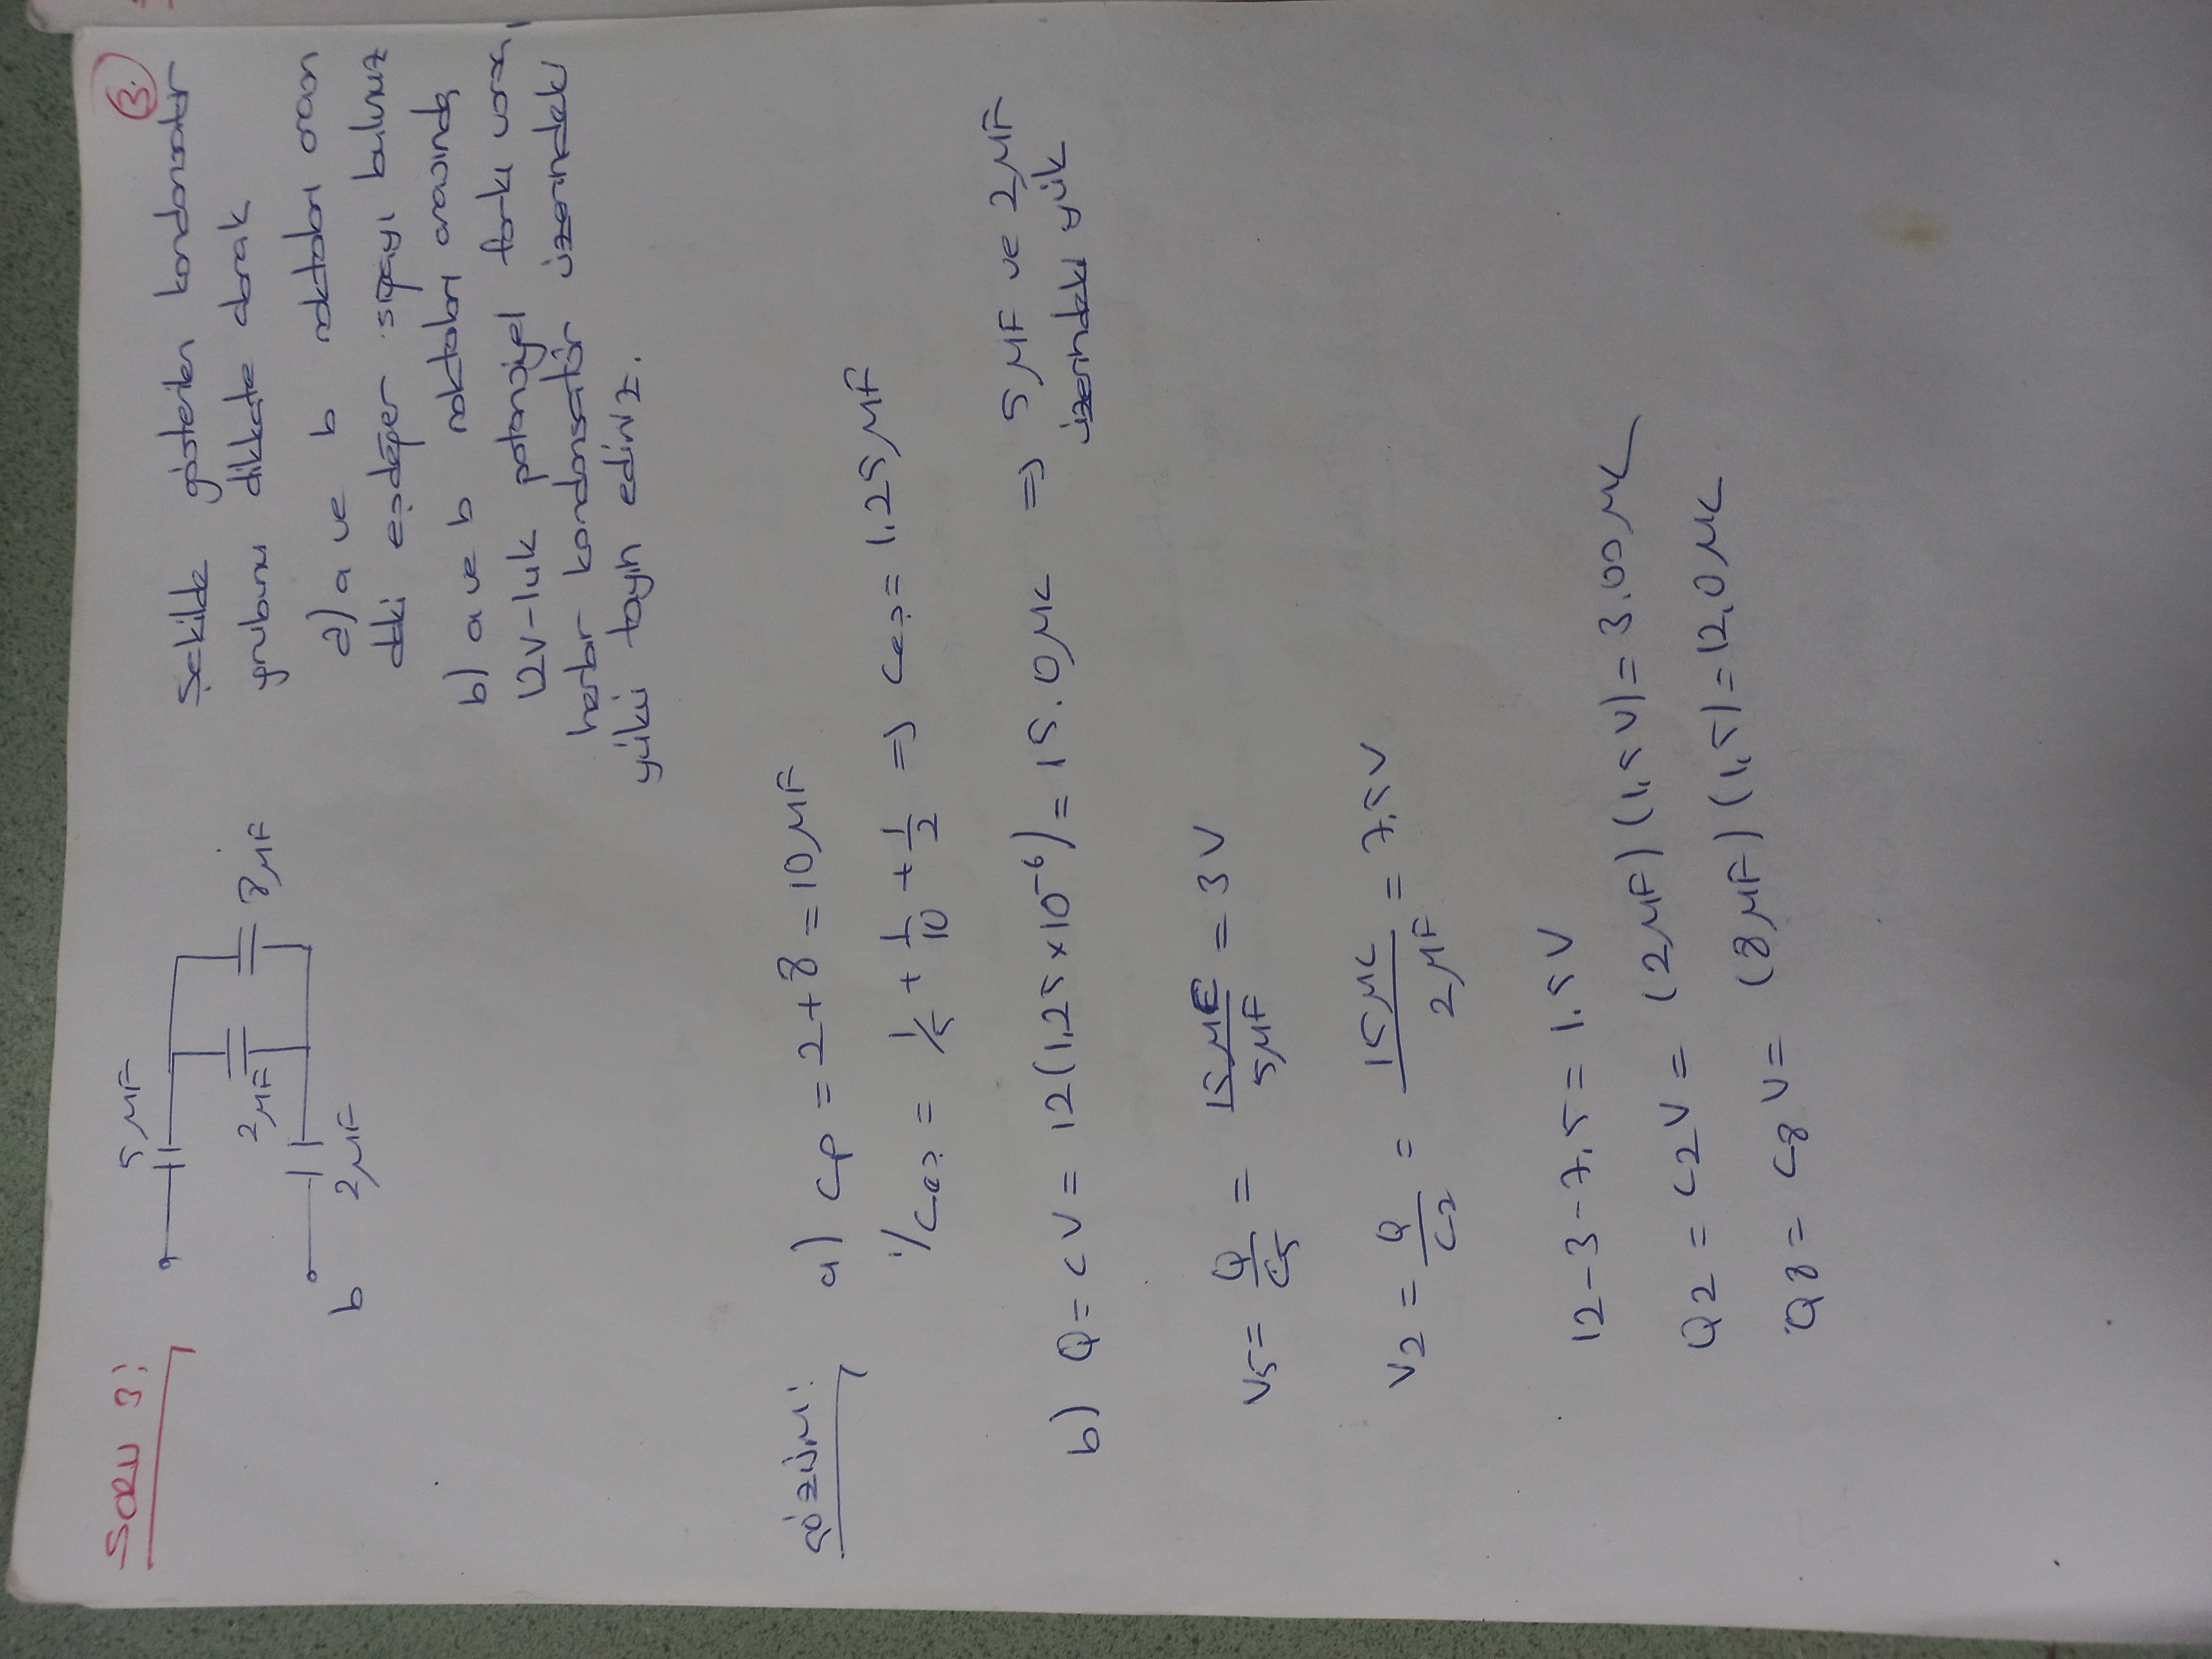 SORU 3:
3.
5 μF
2μF
8μF
b
2μF
Şekilde gösterilen kondansatör
grubunu dikkate alarak
a) a ve b noktaları arasın
daki eşdeğer sığayı bulunuz
b) a ve b noktaları arasında
12V-luk potansiyel farkı varsa,
herbir kondansatör üzerindeki
yükü tayin ediniz.
ÇÖZÜM:
a) Cp = 2+8 = 10 μF
1/Ceş = 1/5 + 1/10 + 1/2 => Ceş = 1.25 μF
b) Q = CV = 12(1.25×10⁻⁶) = 15.0 μC => 5 μF ve 2 μF
üzerindeki yük
V5 = Q/C5 = 15μC/5μF = 3V
V2 = Q/C2 = 15μC/2μF = 7.5V
12-3-7.5 = 1.5V
Q2 = C2V = (2μF)(1.5V) = 3.00 μC
Q8 = C8V = (8μF)(1,5) = 12.0 μC